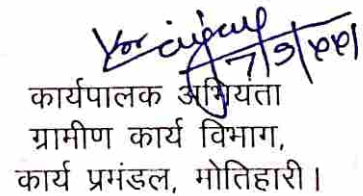 7/9/2021
कार्यपालक अभियंता
ग्रामीण कार्य विभाग,
कार्य प्रमंडल, मोतिहारी।